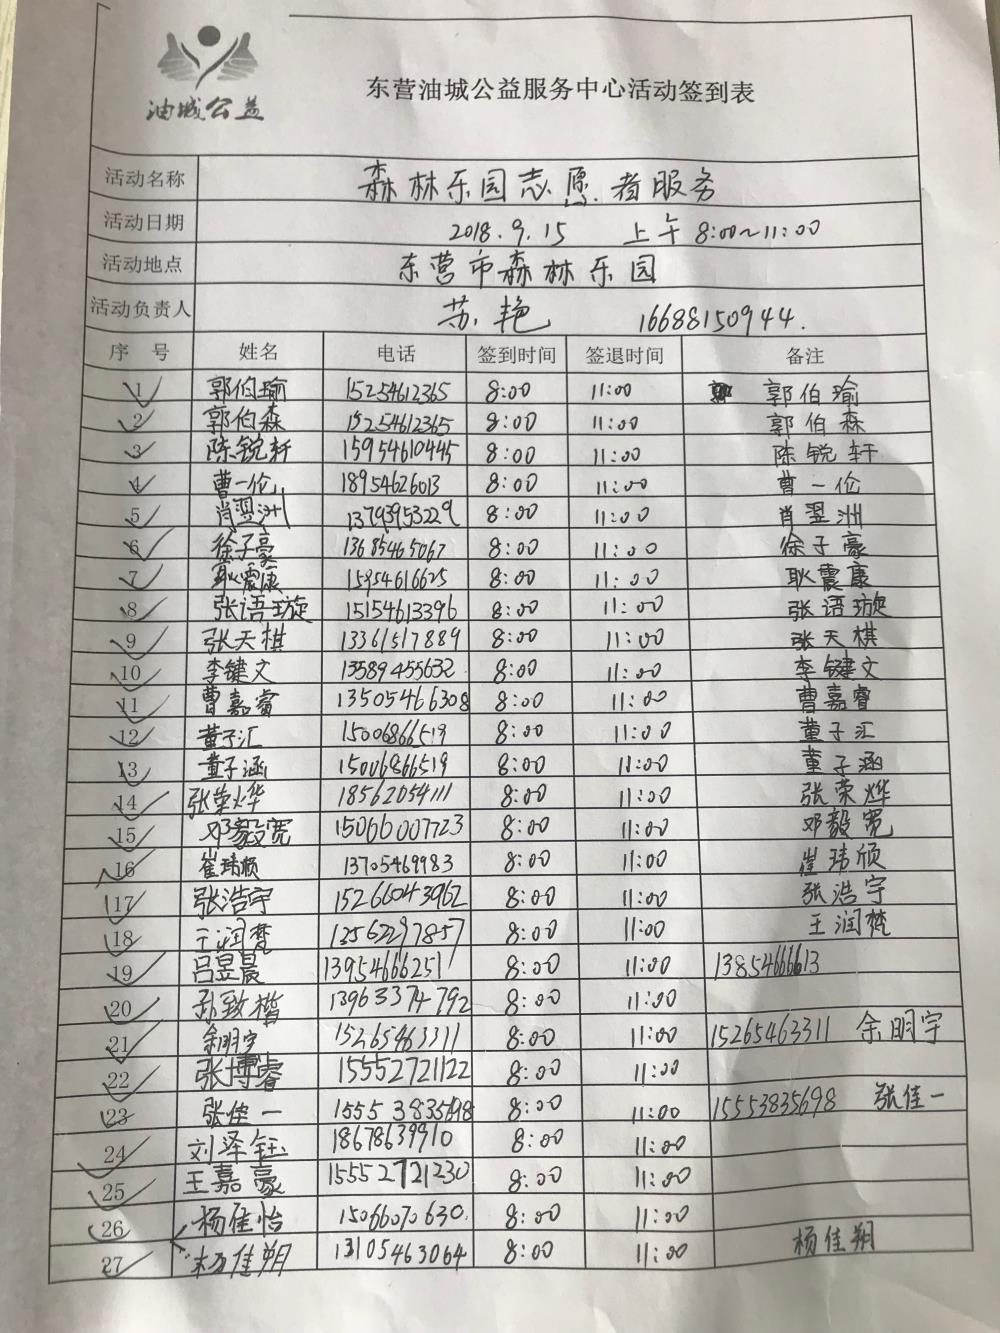 油城公益
东营油城公益服务中心活动签到表
活动名称 森林乐园志愿者服务
活动日期 2018.9.15 上午 8:00~11:00
活动地点 东营市森林乐园
活动负责人 苏艳 16688150944.
序号 姓名 电话 签到时间 签退时间 备注
1 郭伯瑜 15254612365 8:00 11:00 郭伯瑜
2 郭伯森 15254612365 8:00 11:00 郭伯森
3 陈锐轩 15954610445 8:00 11:00 陈锐轩
4 曹一伦 18954626013 8:00 11:00 曹一伦
5 肖翌洲 13793953229 8:00 11:00 肖翌洲
6 徐子豪 13685465067 8:00 11:00 徐子豪
7 耿震康 15954616625 8:00 11:00 耿震康
8 张语璇 15154613396 8:00 11:00 张语璇
9 张天棋 13361517889 8:00 11:00 张天棋
10 李键文 13589455632 8:00 11:00 李键文
11 曹嘉睿 13505466308 8:00 11:00 曹嘉睿
12 董子汇 15006866519 8:00 11:00 董子汇
13 董子涵 15006866519 8:00 11:00 董子涵
14 张荣烨 18562054111 8:00 11:00 张荣烨
15 邓毅宽 15066007723 8:00 11:00 邓毅宽
16 崔玮颀 13705469983 8:00 11:00 崔玮颀
17 张浩宇 15266043962 8:00 11:00 张浩宇
18 王润梵 13562297857 8:00 11:00 王润梵
19 吕昱晨 13954666251 8:00 11:00 13854666613
20 孙致楷 13963374792 8:00 11:00
21 余明宇 15265463311 8:00 11:00 15265463311 余明宇
22 张博睿 15552721122 8:00 11:00
23 张佳一 15553835698 8:00 11:00 15553835698 张佳一
24 刘泽钰 18678639910 8:00 11:00
25 王嘉豪 15552721230 8:00 11:00
26 杨佳怡 15066070630 8:00 11:00
27 杨佳朔 13105463064 8:00 11:00 杨佳朔